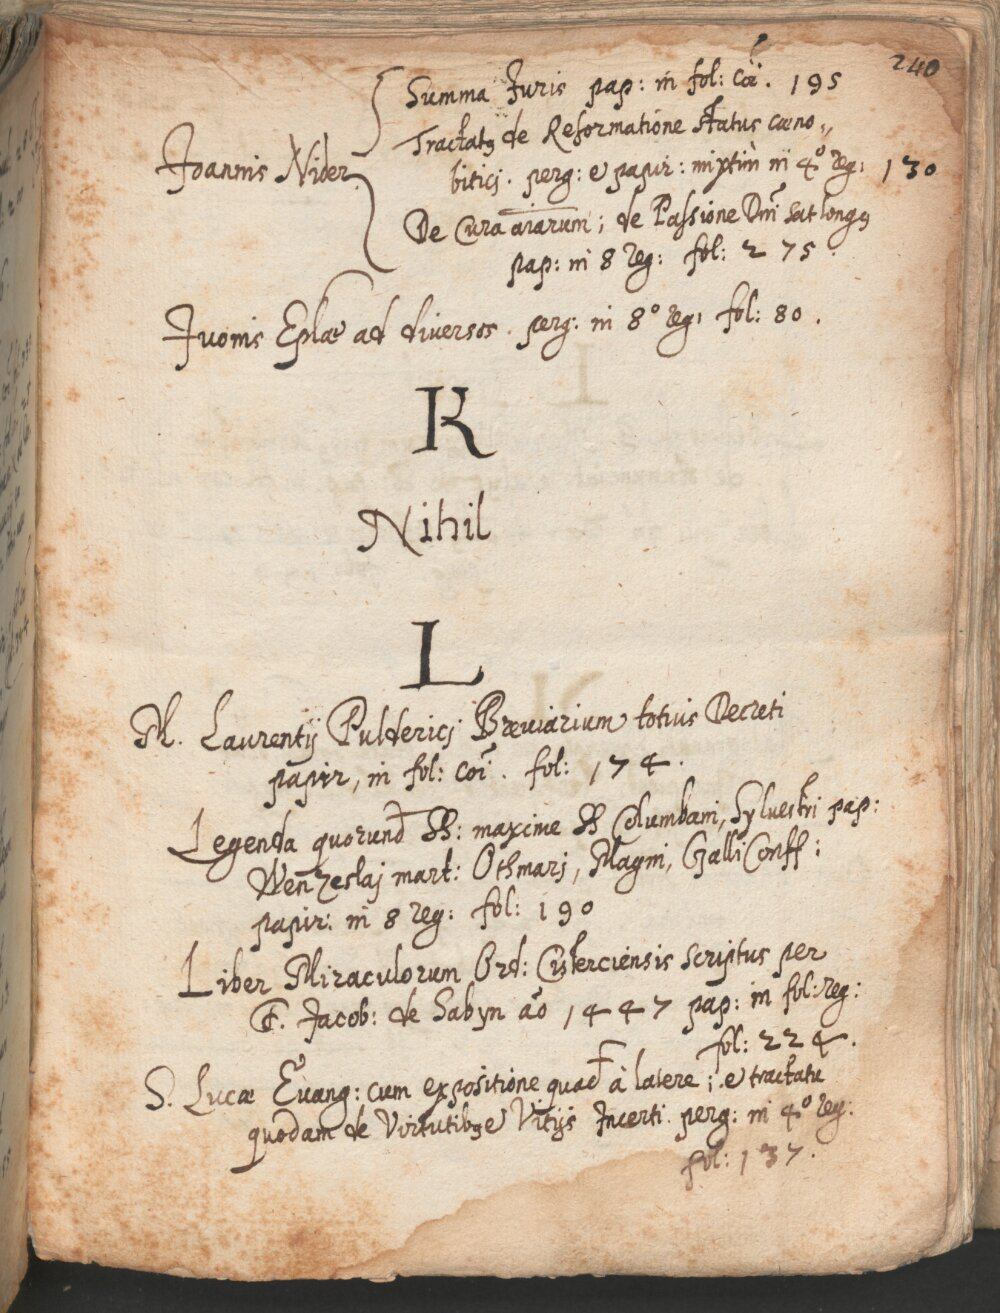 240
Summa Juris pap: in fol: coi. 195
Tractatꝯ de Reformatione status cœno„
Joannis Nider
biticj. perg: e papir: mixtim in 4º reg: 130
De Cura aiarum; de Passione Dni sat longꝯ
pap: in 8 reg: fol: 275.
Juonis Eplæ ad diversos. perg: in 8º reg: fol: 80.
K
Nihil
L
M. Laurentij Puldericj Breuiarium totius Decreti
papir, in fol: coi. fol: 174.
Legenda quorund SS: maxime SS Columbani, Sylvestri pap:
Wenzeslaj mart: Othmarj, Magni, Galli Conff:
papir: in 8 reg: fol: 190
Liber Miraculorum Ord: Cisterciensis scriptus per
F. Jacob: de Sabyn ao 1447 pap: in fol: reg:
fol: 224.
S. Lucæ Euang: cum expositione quad à latere; e tractatu
quodam de Virtutibꝯ e Vitijs Incerti. perg: in 4º reg:
fol: 137.